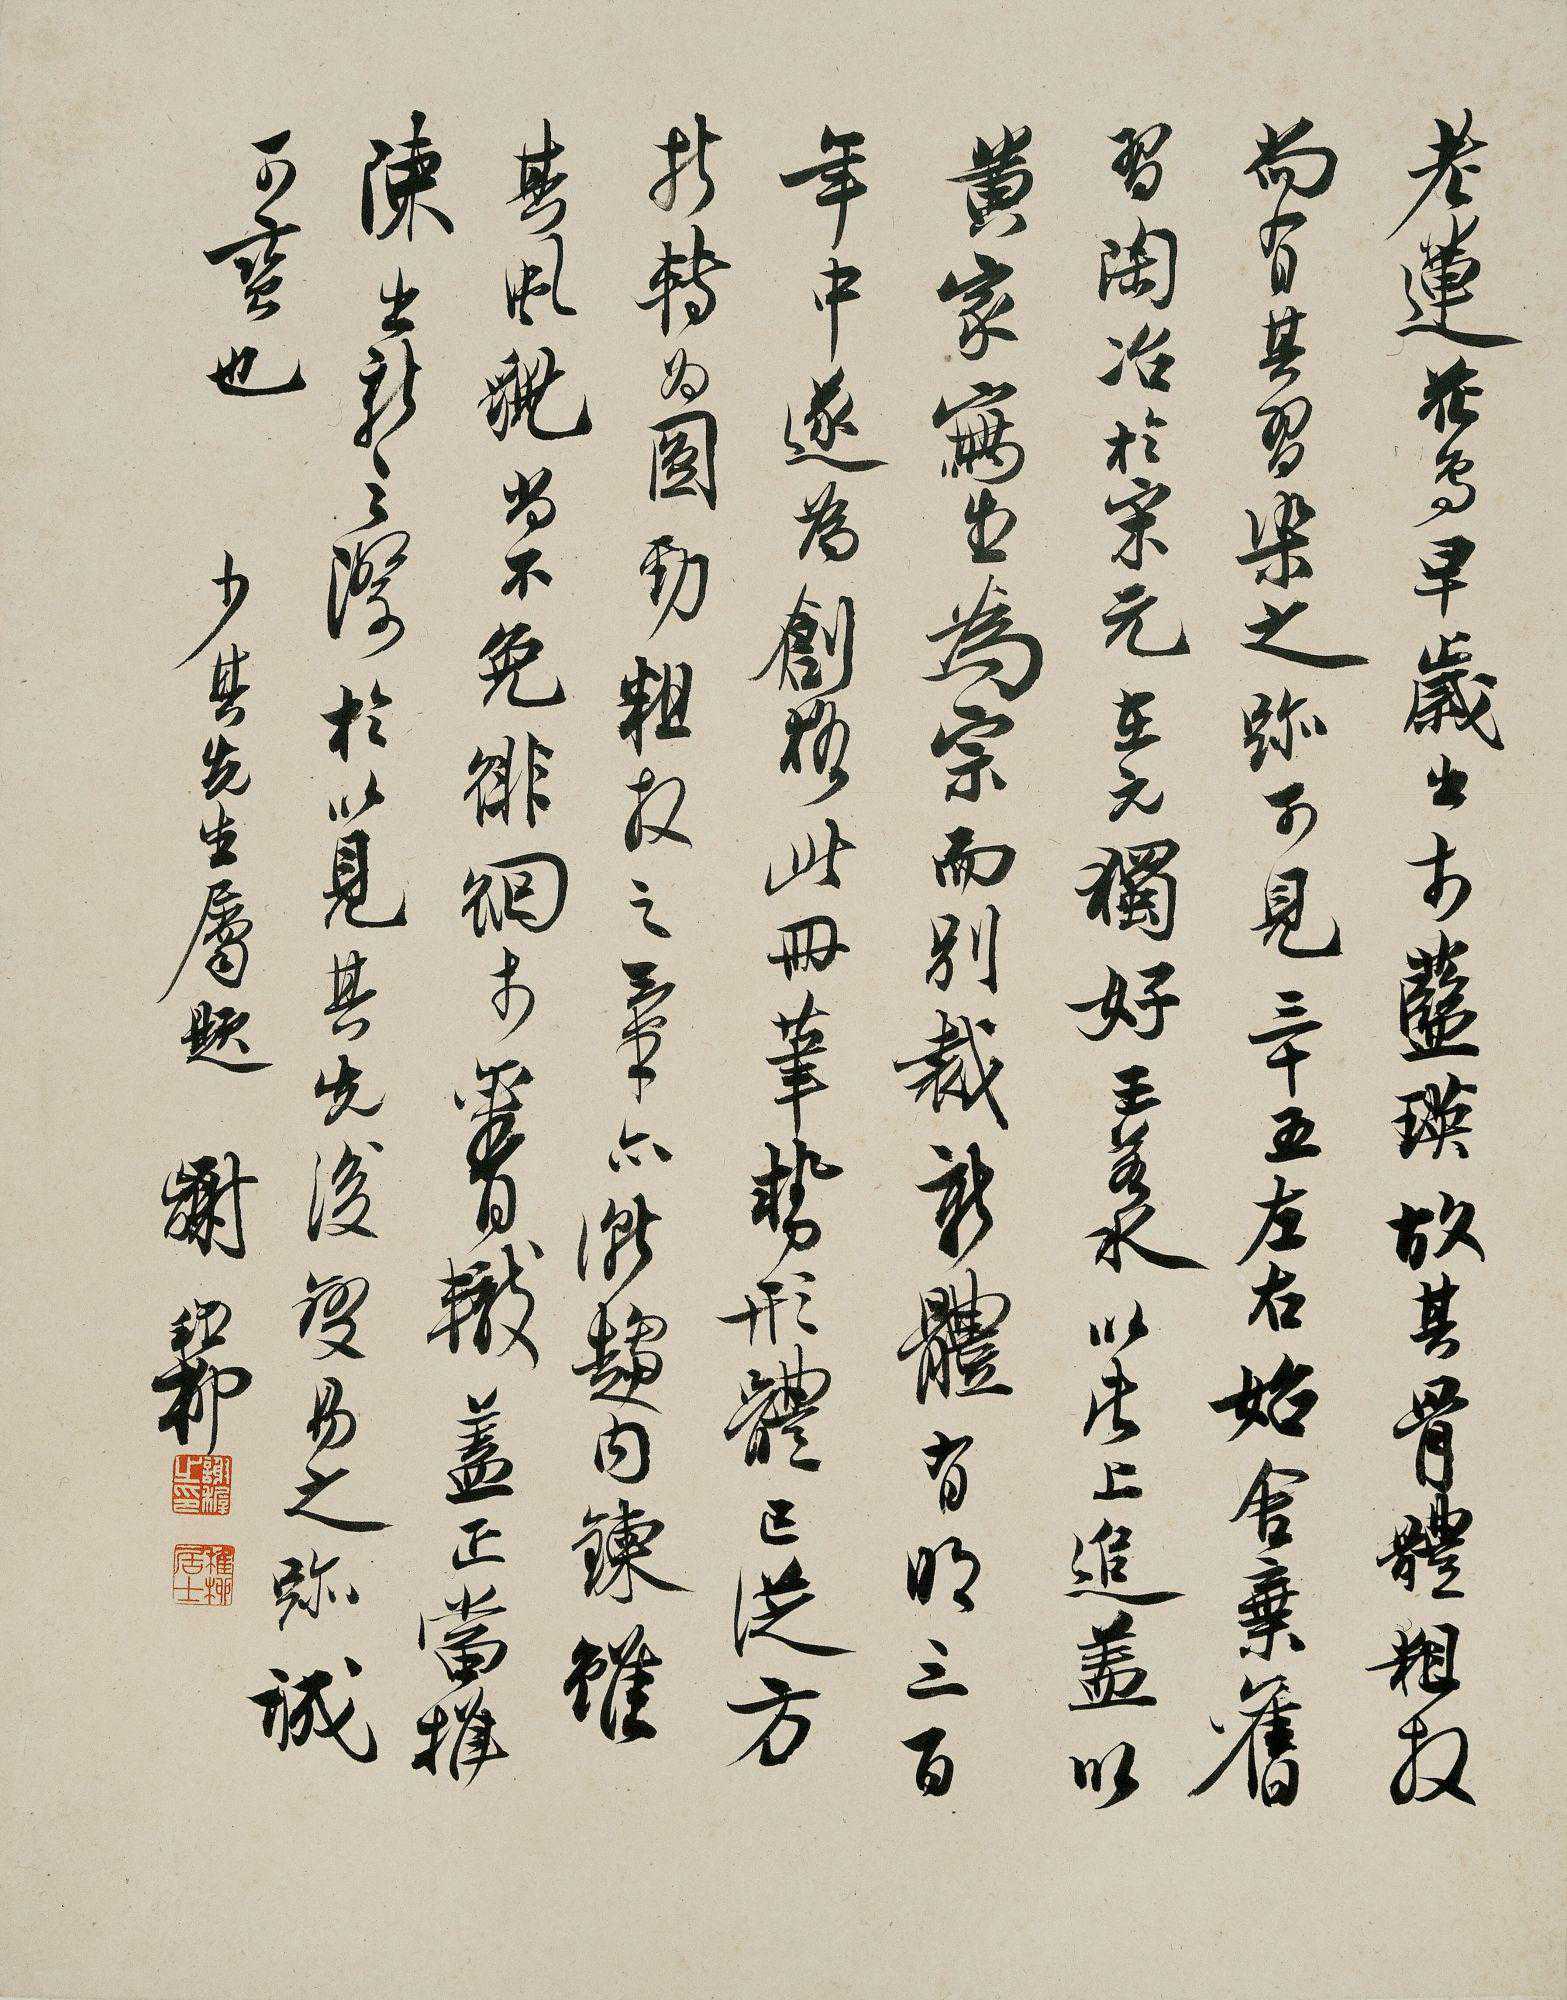 老蓮花鳥早歲出於藍瑛故其骨體粗放
而有其習染之跡可見三十五左右始舍棄舊
習陶冶於宋元在元獨好王若水以此上追蓋以
黃家寫生為宗而別裁新體有明三百
年中遂為創格此冊筆勢形體已從方
折轉為圓勁粗放之氣亦漸趨內鍊雖
其風貌尚不免徘徊於舊轍蓋正當推
陳出新之際於以見其先後變易之跡誠
可寶也
少其先生屬題 謝稚柳
謝稚之印
稚柳居士